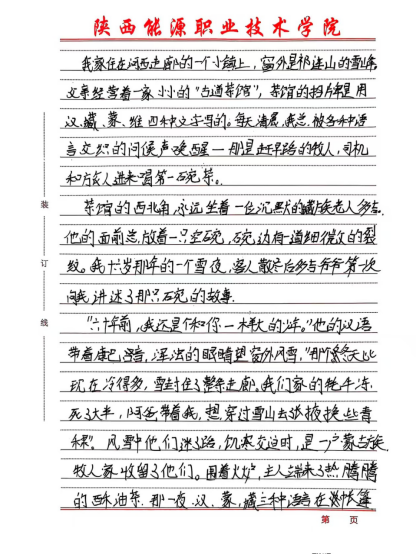 陕西能源职业技术学院
我家住在河西走廊的一个小镇上，窗外是祁连山的雪峰
父辈经营着一家小小的"古道茶馆"，茶馆的招牌是用
汉、藏、蒙、维四种文字写的。每天清晨，我总被各种语
言交织的问候声唤醒——那是赶早路的牧人、司机
和旅人进来喝第一碗茶。
茶馆的西北角，永远坐着一位沉默的藏族老人多吉，
他的面前总放着一只空碗，碗边有一道细微的裂
纹。我十岁那年的一个雪夜，客人散尽后多吉爷爷第一次
向我讲述了那只碗的故事。
"六十年前，我还是个和你一样大的少年。"他的汉语
带着康巴口音，浑浊的眼睛望窗外风雪，"那个冬天比
现在冷得多，雪封住了整条走廊。我们家的牦牛冻
死了大半，阿爸带着我，想穿过雪山去张掖换些青
稞"。风雪中他们迷了路，饥寒交迫时，是一户蒙古族
牧人家收留了他们。围着火炉，主人端来了热腾腾
的酥油茶，那一夜，汉、蒙、藏三种语言在帐篷
装
订
线
第 页